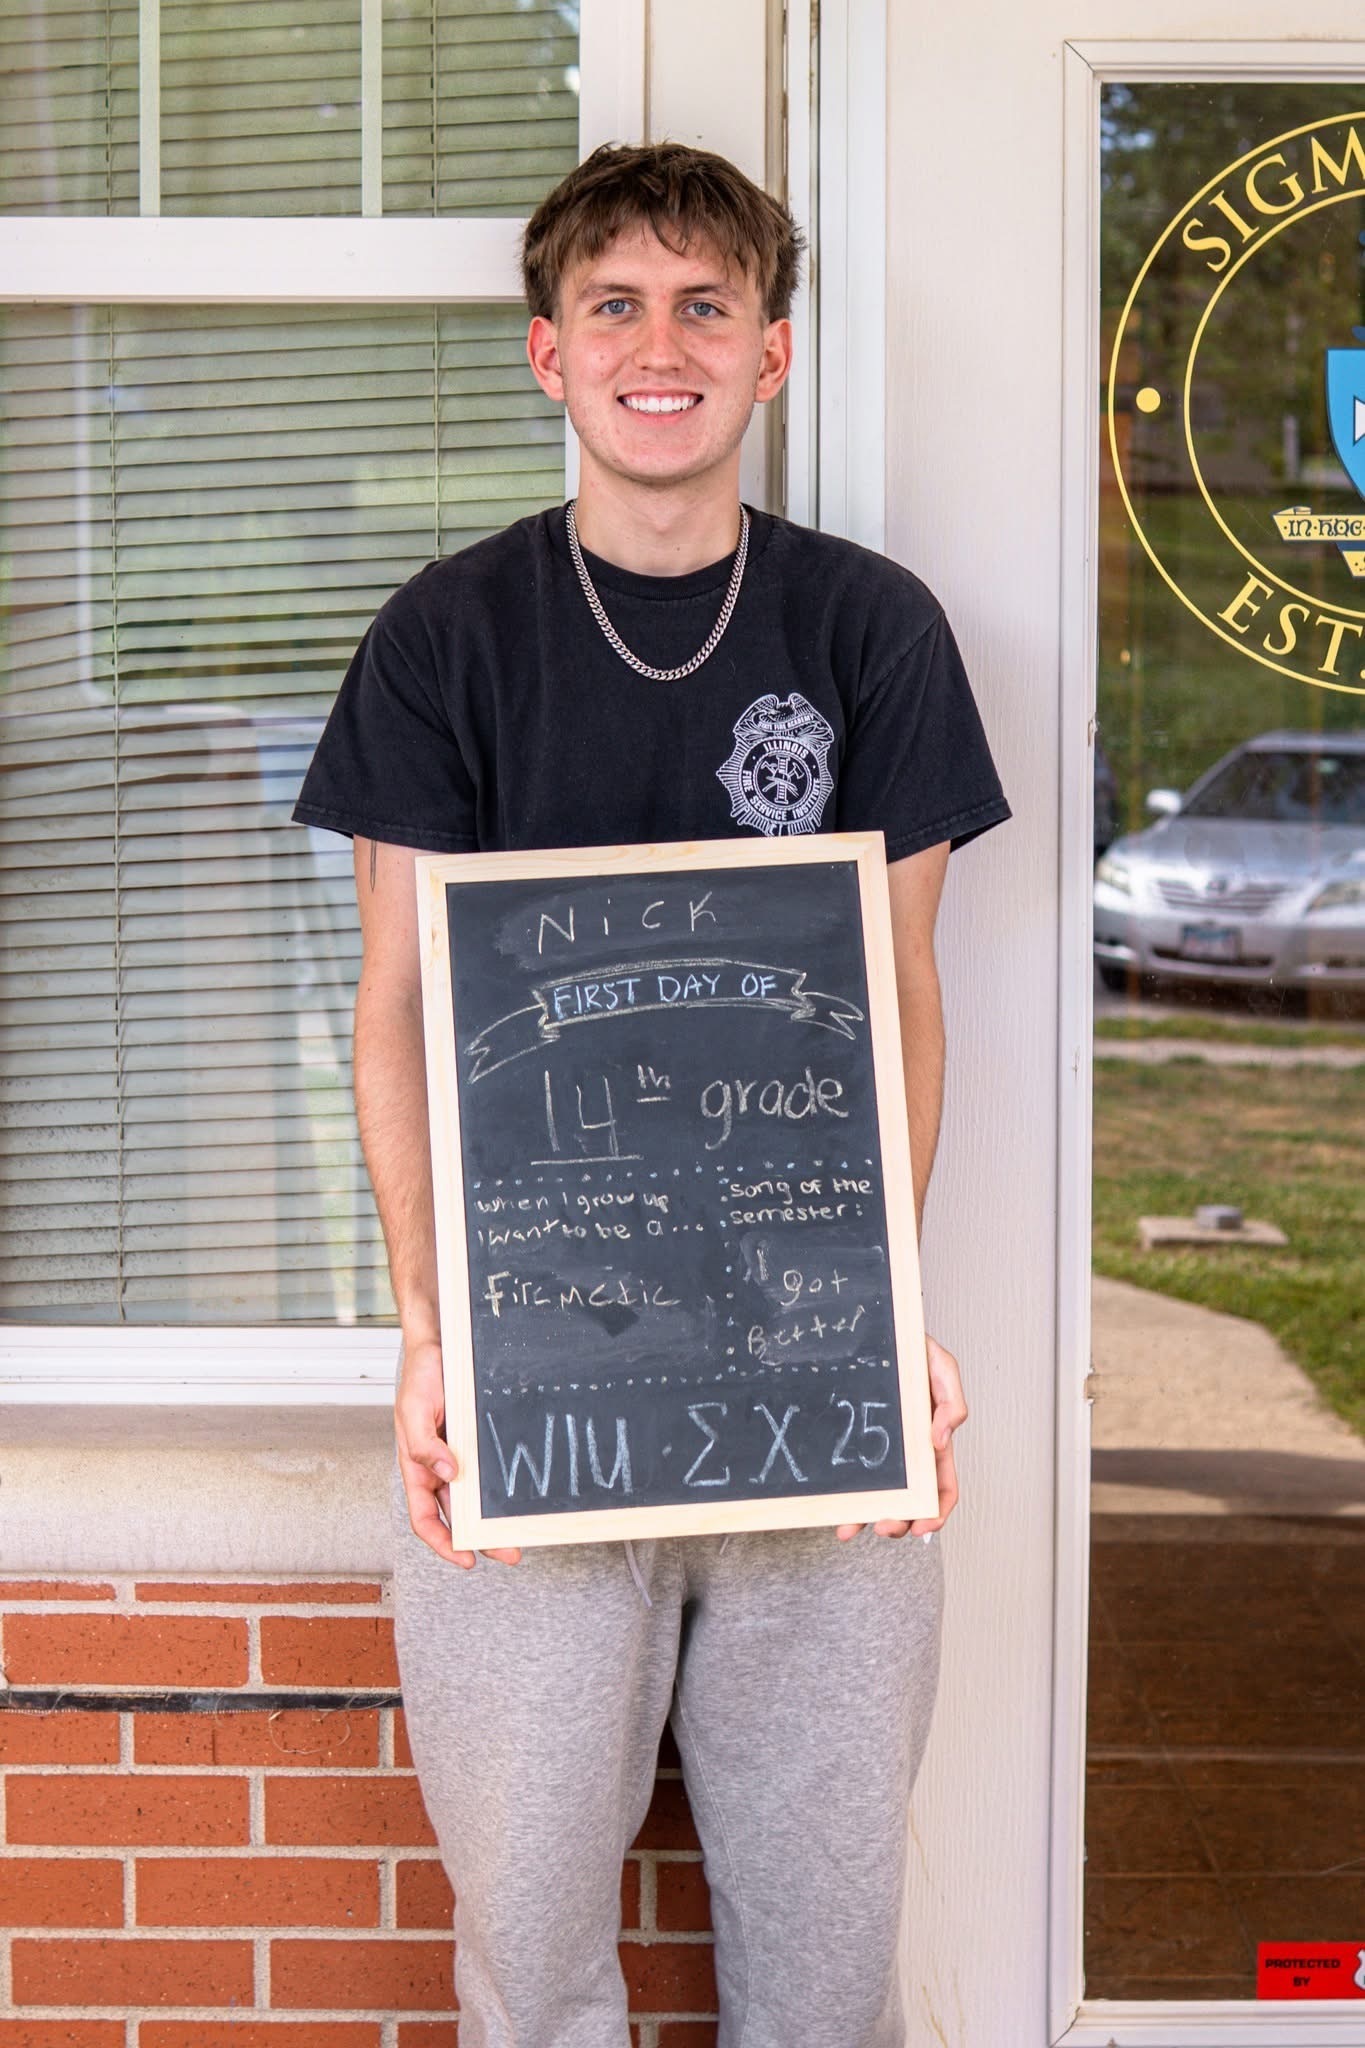 SIGM
IN·HOC·
EST.
STATE FIRE ACADEMY
ILLINOIS
FIRE SERVICE INSTITUTE
Nick
FIRST DAY OF
14th grade
when I grow up
I want to be a...
Firemedic
song of the
semester:
I
got
Better
WIU · Σ X '25
PROTECTED
BY